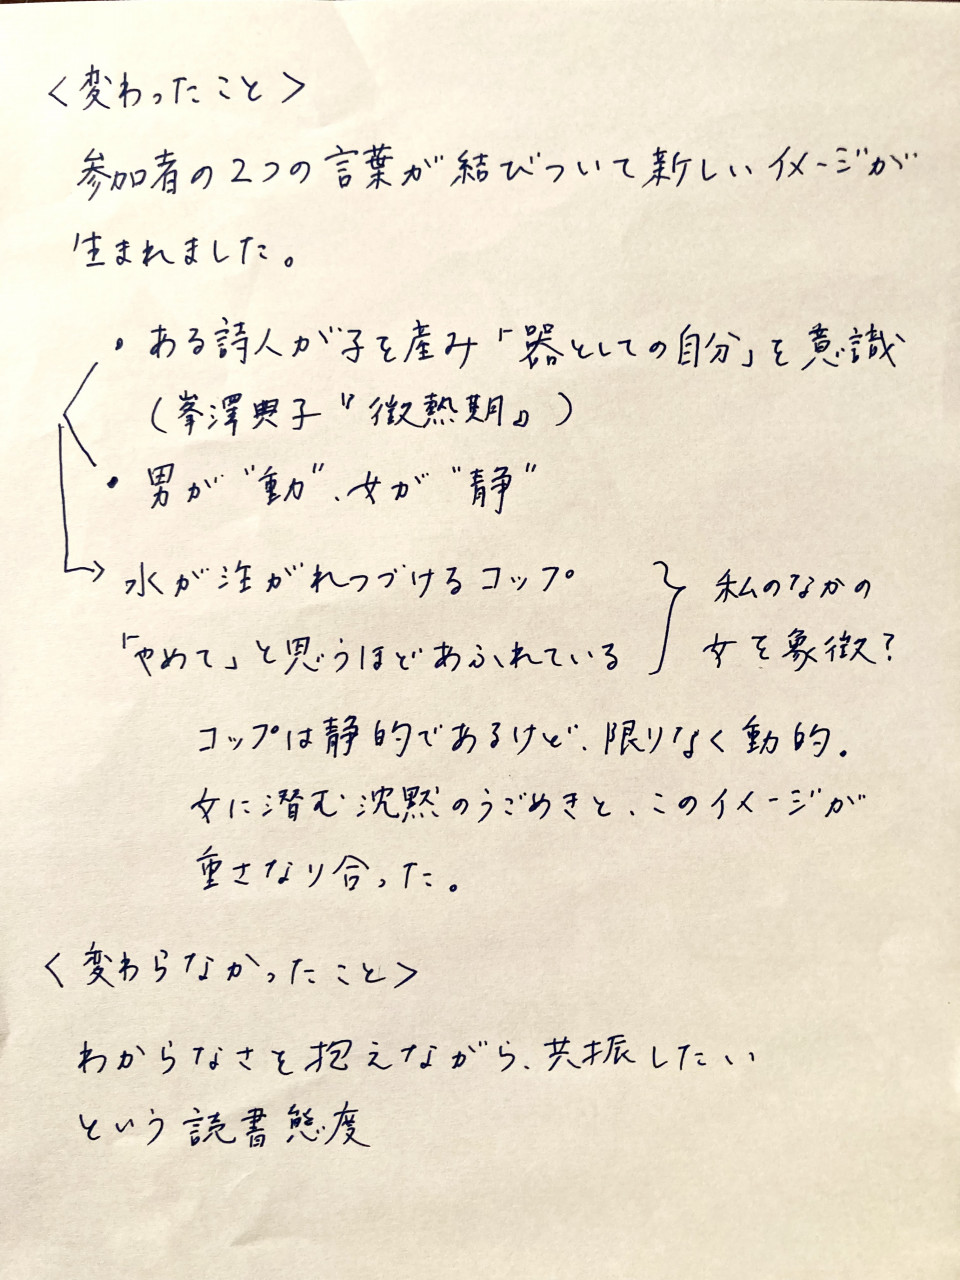 ＜変わったこと＞
参加者の2つの言葉が結びついて新しいイメージが
生まれました。
・ある詩人が子を産み「器としての自分」を意識
（峯澤典子『微熱期』）
・男が"動"、女が"静"
水が注がれつづけるコップ
「やめて」と思うほどあふれている
私のなかの
女を象徴?
コップは静的であるけど、限りなく動的。
女に潜む沈黙のうごめきと、このイメージが
重さなり合った。
＜変わらなかったこと＞
わからなさを抱えながら、共振したい
という読書態度